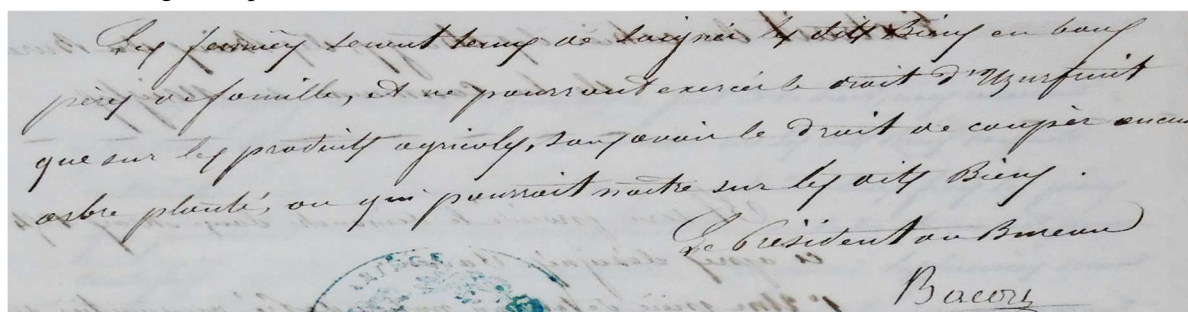 Les fermiers seront tenus de soigner les dits Biens en bons
pères de famille, et ne pourront exercer le droit d'Uzurfruit
que sur les produits agricoles, sans avoir le droit de couper aucun
arbre planté, ou qui pourrait naître sur les dits Biens.
Le Président du Bureau
Bacon